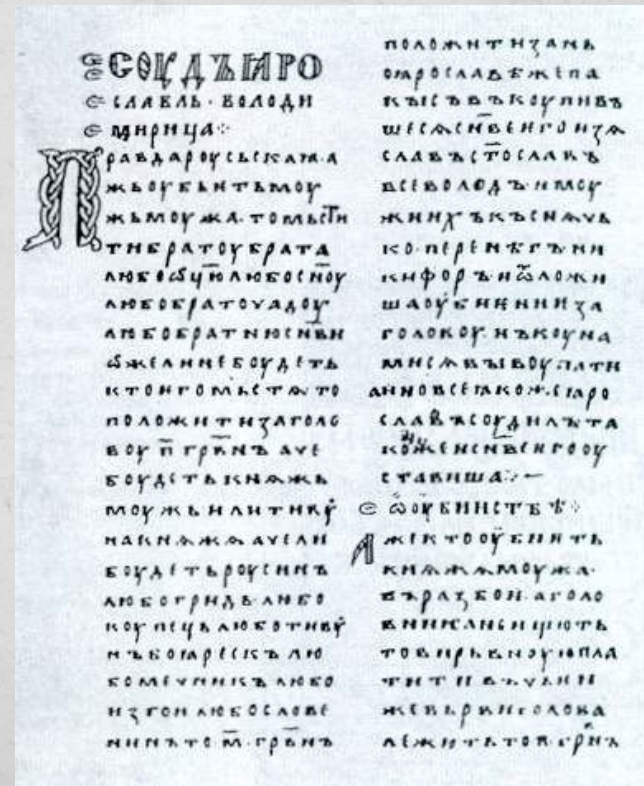 СОУДЪ ꙖРО
СЛАВЛЬ · ВОЛОДИ
МИРИЦА ⁘
ПРАВДАРОУСЬСКАꙖ · А
ЖЬОУБЬИТЬМОУ
ЖЬМОУЖА · ТОМЬСТИ
ТИБРАТОУБРАТА
ЛЮБОѾЦЮЛЮБОСН҃ОУ
ЛЮБОБРАТОЧАДОУ
ЛЮБОБРАТНЮСН҃ВИ
ѾЖЕЛИНЕБОУДЕТЬ
КТОИГОМЬСТѦТО
ПОЛОЖИТИЗАГОЛО
ВОУ П҃ ГРВ҃НЪ АЧЕ
БОУДЕТЬКНѦЖЬ
МОУЖЬИЛИТИВОУ
НАКНѦЖѦАЧЕЛИ
БОУДЕТЬРОУСИНЪ
ЛЮБОГРИДЬ · ЛЮБО
КОУПЕЦЬЛЮБОТИВОУ
НЪБОꙖРЕСКЪ ЛЮ
БОМЕЧНИКЪЛЮБО
ИЗГОИЛЮБОСЛОВЕ
НИНЪТО · М҃ · ГРВ҃НЪ
ПОЛОЖИТИЗАНЬ
ОꙖРОСЛАВѢЖЕПА
КЫСЪВЪКОУПИВЪ
ШЕСѦСН҃ВЕИГОИЗѦ
СЛАВЪСТ҃ОСЛАВЪ
ВСЕВОЛОДЪ · ИМОУ
ЖИИХЪКЪСНѦЧЬ
КО · ПЕРЕНѢГЪНИ
КИФОРЪ · ИѾЛОЖИ
ШАОУБИЕНИИЗА
ГОЛОВОУ · НЪКОУНА
МИСѦВЫКОУПАТИ
АИНОВСЕꙖКОЖ · СꙖРО
СЛАВЪСОУДИЛЪТА
КОЖЕИСН҃ВЕИГООУ
СТАВИША ⁘
ѾОУБИИСТВѢ ⁘
АЖЕКТООУБИИТЬ
КНѦЖѦМОУЖА ·
ВЪРАЗБОИ · АГОЛО
ВНИКАНЬИЩЮТЬ
ТОВИРЬВНОУЮПЛА
ТИТИВЪЧЬИИ
ЖЕВЬРВИГОЛОВА
ЛЕЖИТЬТОП҃ · ГРИ҃Ъ